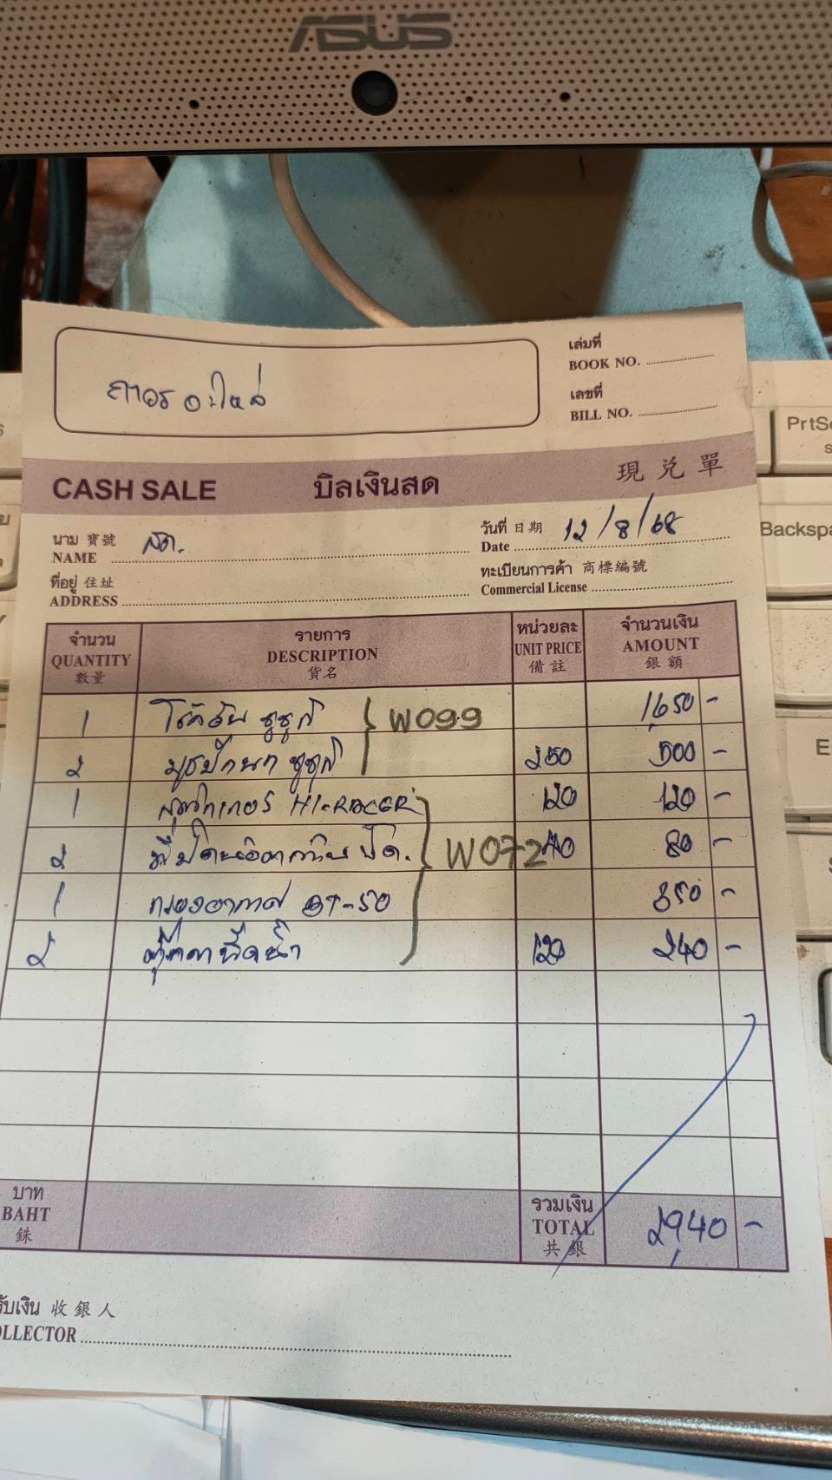 ASUS
ถาวรอะไหล่
เล่มที่
BOOK NO.
เลขที่
BILL NO.
CASH SALE บิลเงินสด 現兌單
นาม 寶號 สด.
NAME
วันที่ 日期 12/8/68
Date
ที่อยู่ 住址
ADDRESS
ทะเบียนการค้า 商標編號
Commercial License
จำนวน รายการ หน่วยละ จำนวนเงิน
QUANTITY DESCRIPTION UNIT PRICE AMOUNT
數量 貨名 備註 銀額
1 ซูซูกิ W099 1,650 -
2 ซูซูกิ 250 500 -
1 HI-RACER 120 120 -
2 W072 40 80 -
1 กรองอากาศ BT-50 350 -
2 ตุ๊กตาฉีดน้ำ 120 240 -
บาท รวมเงิน
BAHT TOTAL 2,940 -
銖 共銀
รับเงิน 收銀人
OLLECTOR
PrtSc
Backspa
E